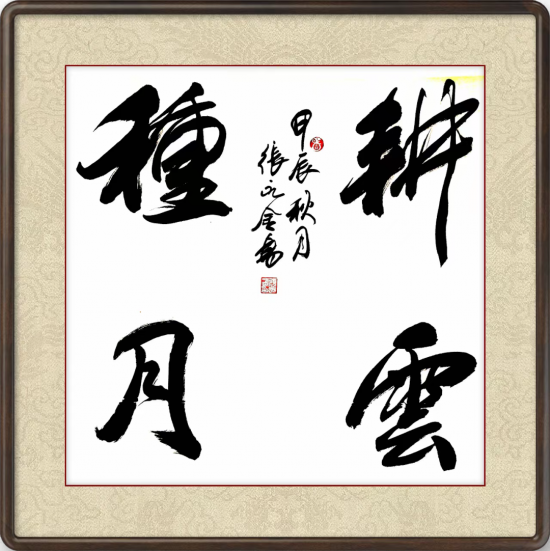 耕雲
種月
甲辰秋月
張元金書